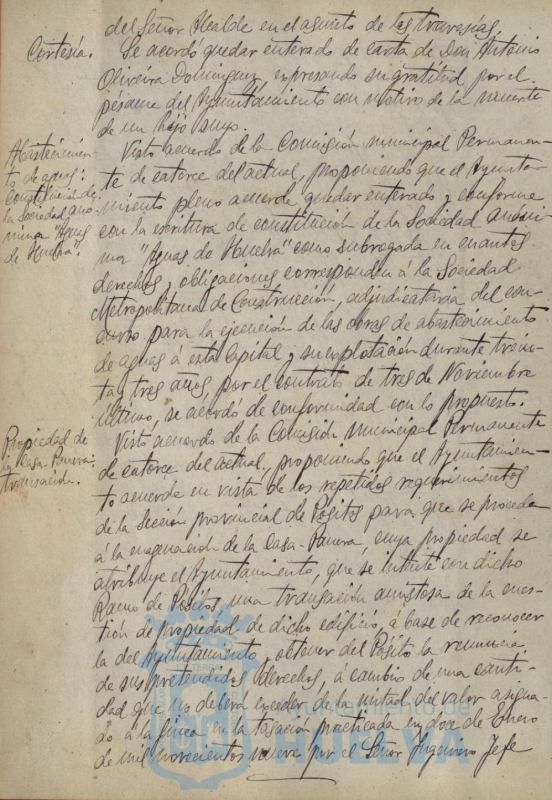 del Señor Alcalde en el asunto de las travesías.
Cortesía.
Se acordó quedar enterado de carta de Don Antonio
Oliveira Dominguez, expresando su gratitud por el
pésame del Ayuntamiento con motivo de la muerte
de un hijo suyo.
Abastecimien-
to de aguas:
Constitución de
la Sociedad anó-
nima "Aguas
de Huelva".
Visto acuerdo de la Comisión municipal Permanen-
te de catorce del actual, proponiendo que el Ayunta-
miento pleno acuerde quedar enterado y conforme
con la escritura de constitución de la Sociedad Anóni-
ma "Aguas de Huelva" como subrogada en cuantos
derechos y obligaciones corresponden á la Sociedad
Metropolitana de Construcción, adjudicataria del con-
curso para la ejecución de las obras de abastecimiento
de aguas á esta Capital y su explotación durante trein-
ta y tres años, por el contrato de tres de Noviembre
último, se acordó de conformidad con lo propuesto.
Propiedad de
la Casa-Panera:
transacción.
Visto acuerdo de la Comisión municipal Permanente
de catorce del actual, proponiendo que el Ayuntamien-
to acuerde en vista de los repetidos requerimientos
de la Sección provincial de Pósitos para que se proceda
á la enagenación de la Casa-Panera, cuya propiedad se
atribuye el Ayuntamiento, que se intente con dicho
Ramo de Pósitos, una transación amistosa de la cues-
tión de propiedad de dicho edificio, á base de reconocer
la del Ayuntamiento y obtener del Pósito la renuncia
de sus pretendidos derechos, á cambio de una canti-
dad que no deberá exceder de la mitad del valor asigna-
do á la finca en la tasación practicada en doce de Enero
de mil novecientos nueve por el Señor Ingeniero Jefe
HUELVA